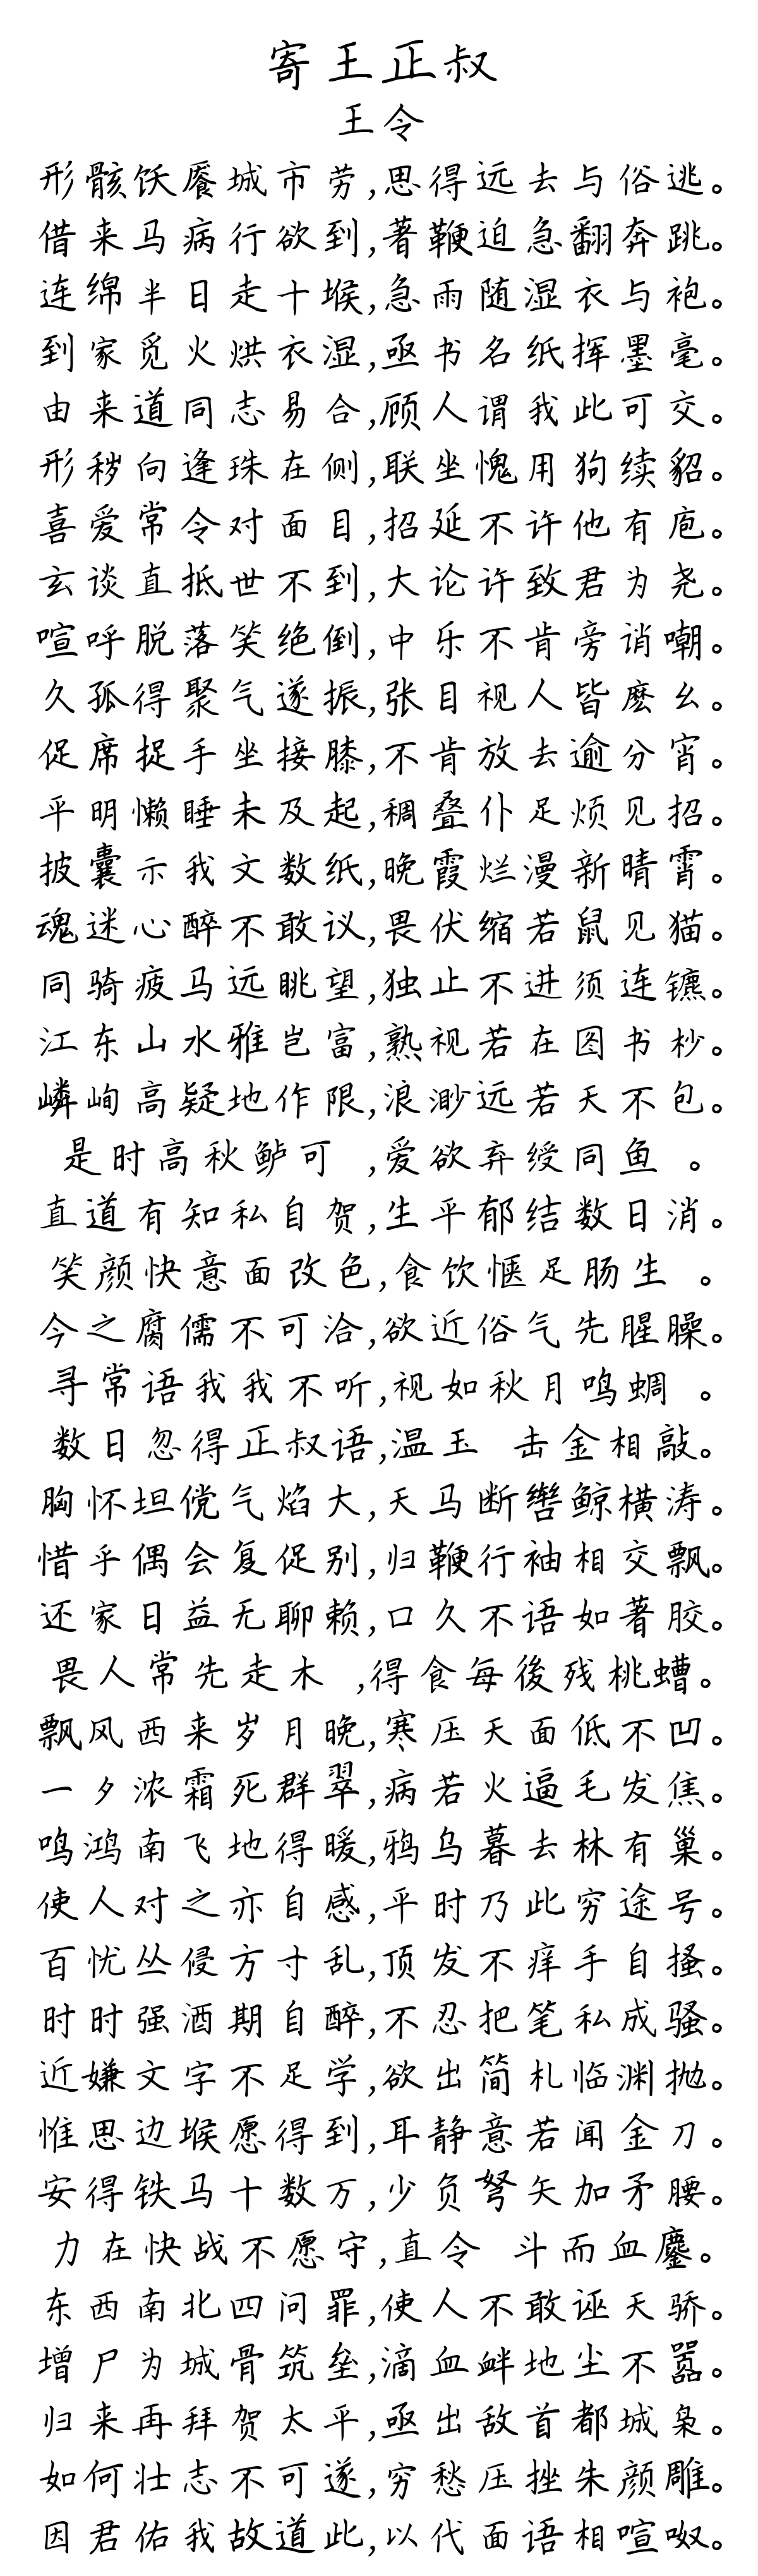 寄王正叔
王令
形骸饫餍城市劳,思得远去与俗逃。
借来马病行欲到,著鞭迫急翻奔跳。
连绵半日走十堠,急雨随湿衣与袍。
到家觅火烘衣湿,亟书名纸挥墨毫。
由来道同志易合,顾人谓我此可交。
形秽向逢珠在侧,联坐愧用狗续貂。
喜爱常令对面目,招延不许他有庖。
玄谈直抵世不到,大论许致君为尧。
喧呼脱落笑绝倒,中乐不肯旁诮嘲。
久孤得聚气遂振,张目视人皆麽幺。
促席捉手坐接膝,不肯放去逾分宵。
平明懒睡未及起,稠叠仆足烦见招。
披囊示我文数纸,晚霞烂漫新晴霄。
魂迷心醉不敢议,畏伏缩若鼠见猫。
同骑疲马远眺望,独止不进须连镳。
江东山水雅岂富,熟视若在图书杪。
嶙峋高疑地作限,浪渺远若天不包。
是时高秋鲈可 ,爱欲弃绶同鱼 。
直道有知私自贺,生平郁结数日消。
笑颜快意面改色,食饮惬足肠生 。
今之腐儒不可洽,欲近俗气先腥臊。
寻常语我我不听,视如秋月鸣蜩 。
数日忽得正叔语,温玉 击金相敲。
胸怀坦傥气焰大,天马断辔鲸横涛。
惜乎偶会复促别,归鞭行袖相交飘。
还家日益无聊赖,口久不语如著胶。
畏人常先走木 ,得食每後残桃螬。
飘风西来岁月晚,寒压天面低不凹。
一夕浓霜死群翠,病若火逼毛发焦。
鸣鸿南飞地得暖,鸦乌暮去林有巢。
使人对之亦自感,平时乃此穷途号。
百忧丛侵方寸乱,顶发不痒手自搔。
时时强酒期自醉,不忍把笔私成骚。
近嫌文字不足学,欲出简札临渊抛。
惟思边堠愿得到,耳静意若闻金刀。
安得铁马十数万,少负弩矢加矛腰。
力在快战不愿守,直令 斗而血鏖。
东西南北四问罪,使人不敢诬天骄。
增尸为城骨筑垒,滴血衅地尘不嚣。
归来再拜贺太平,亟出敌首都城枭。
如何壮志不可遂,穷愁压挫朱颜雕。
因君佑我故道此,以代面语相喧呶。